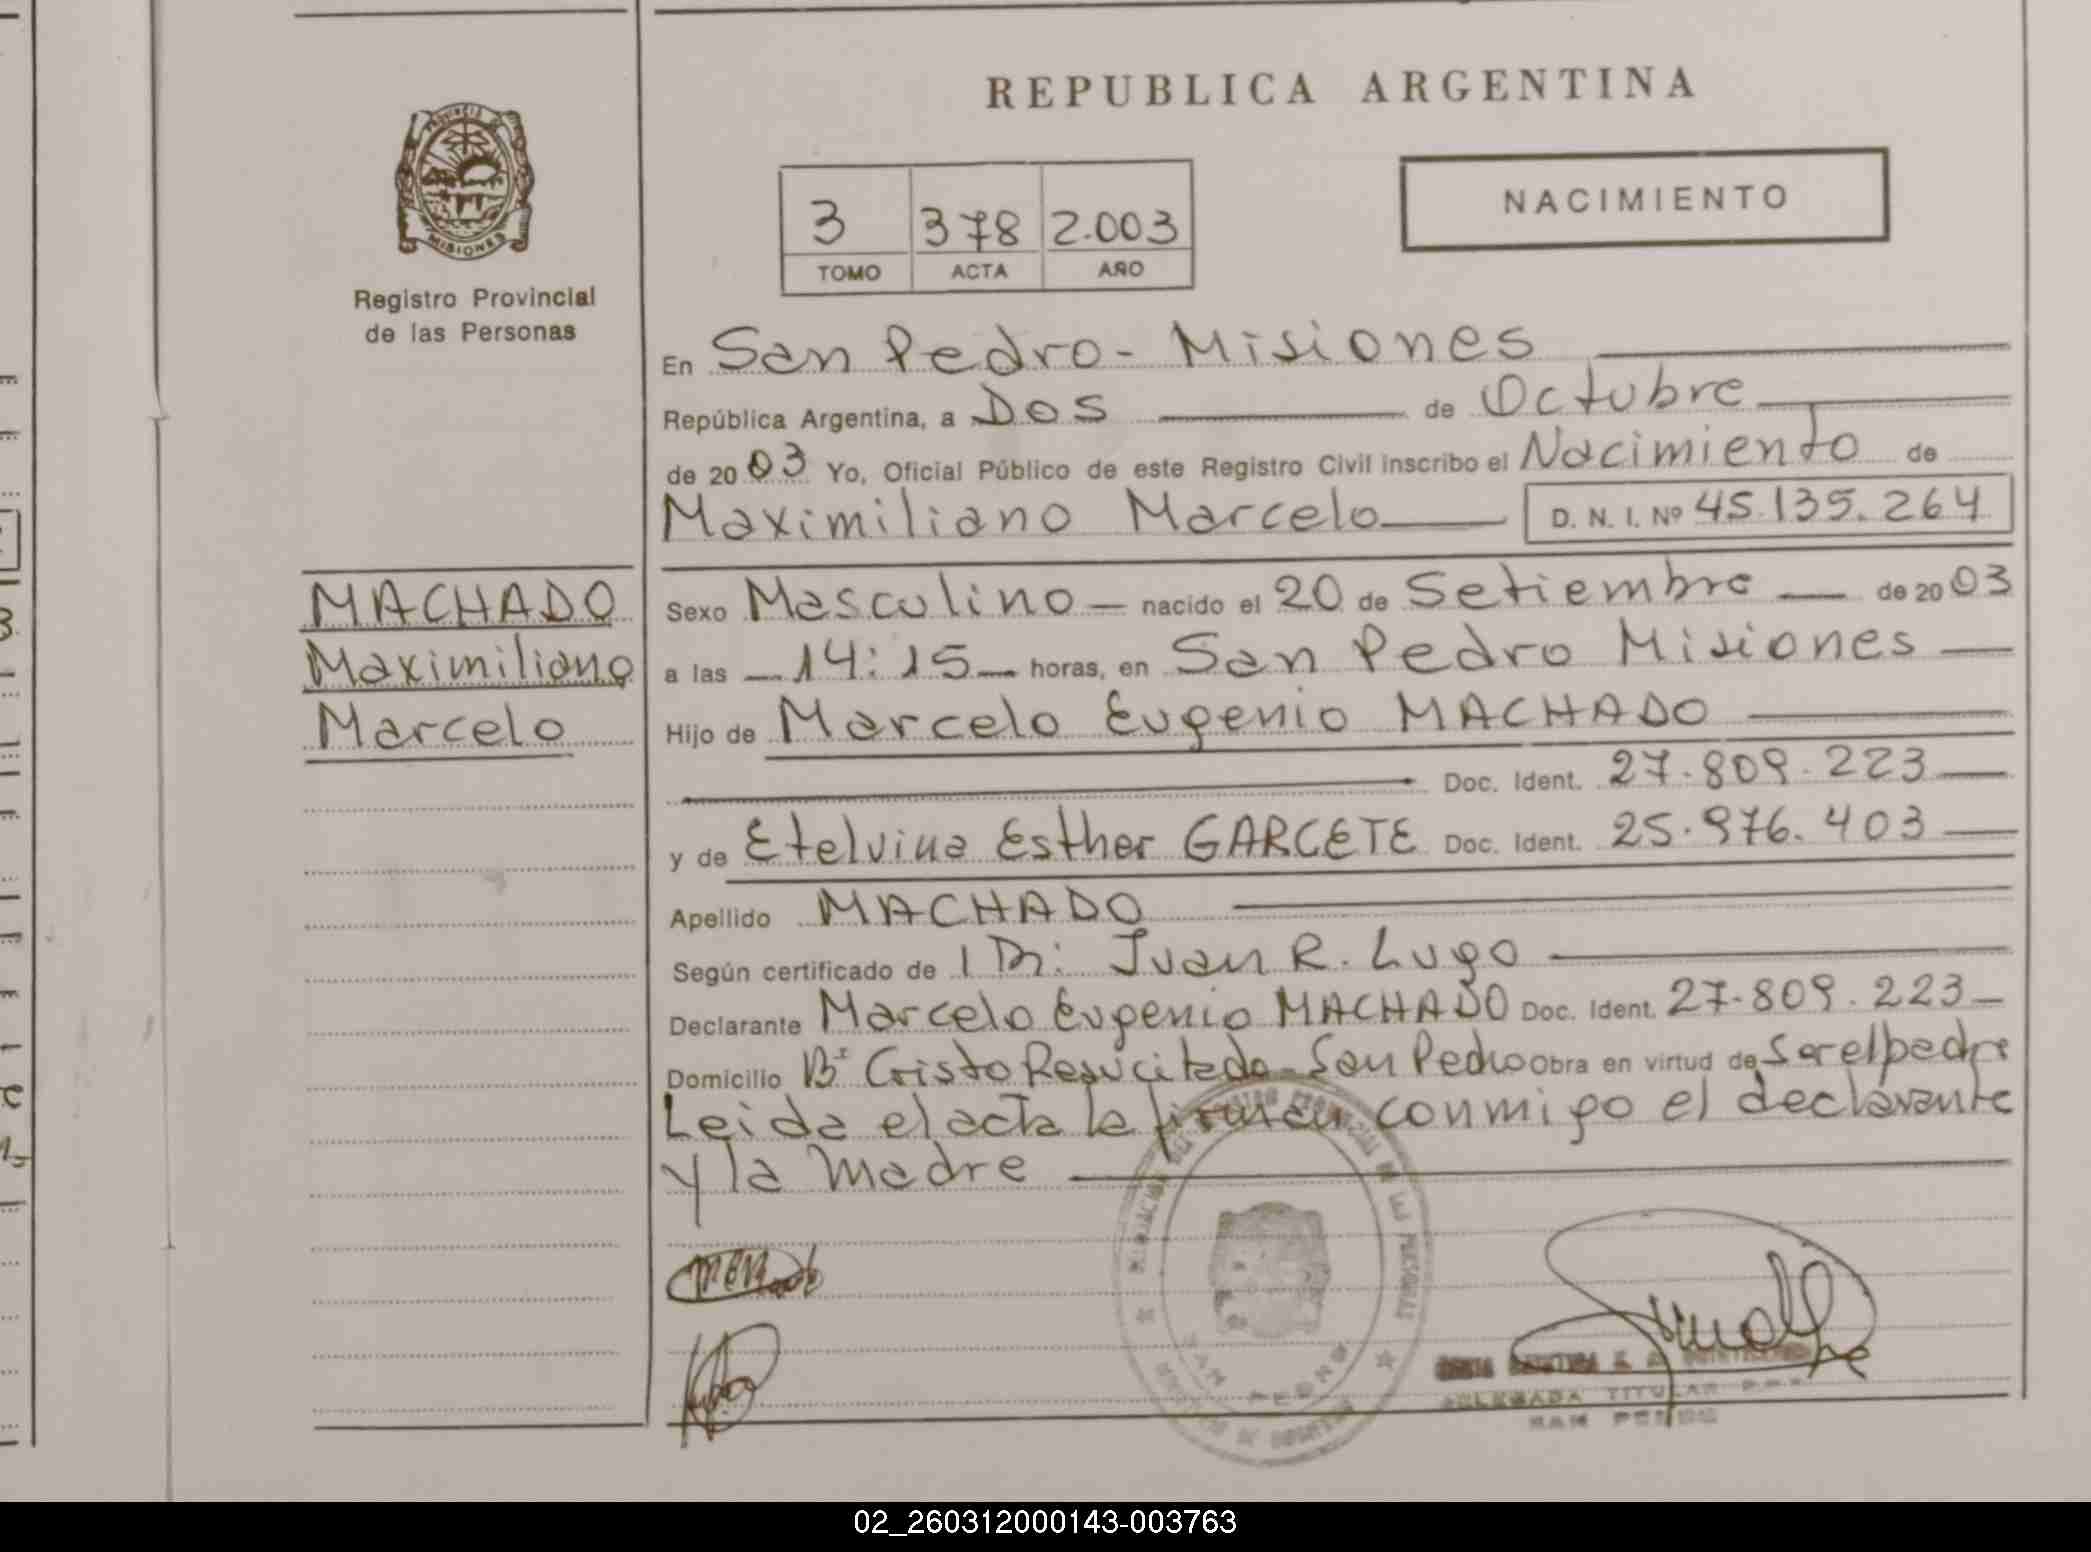 REPUBLICA ARGENTINA
PROVINCIA DE
MISIONES
Registro Provincial
de las Personas
NACIMIENTO
3 378 2.003
TOMO ACTA AÑO
En San Pedro - Misiones
República Argentina, a Dos de Octubre
de 20 03 Yo, Oficial Público de este Registro Civil inscribo el Nacimiento de
Maximiliano Marcelo D. N. I. Nº 45.135.264
MACHADO
Maximiliano
Marcelo
Sexo Masculino - nacido el 20 de Setiembre de 20 03
a las 14:15 horas, en San Pedro Misiones
Hijo de Marcelo Eugenio MACHADO
Doc. Ident. 27.809.223
y de Etelvina Esther GARCETE Doc. Ident. 25.976.403
Apellido MACHADO
Según certificado de Juan R. Lugo
Declarante Marcelo Eugenio MACHADO Doc. Ident. 27.809.223
Domicilio Bº Cristo Resucitado - San Pedro Obra en virtud de Ser el padre
Leida el acta la firman conmigo el declarante
y la Madre
SAN PEDRO
DELEGADA TITULAR
SAN PEDRO
02_260312000143-003763